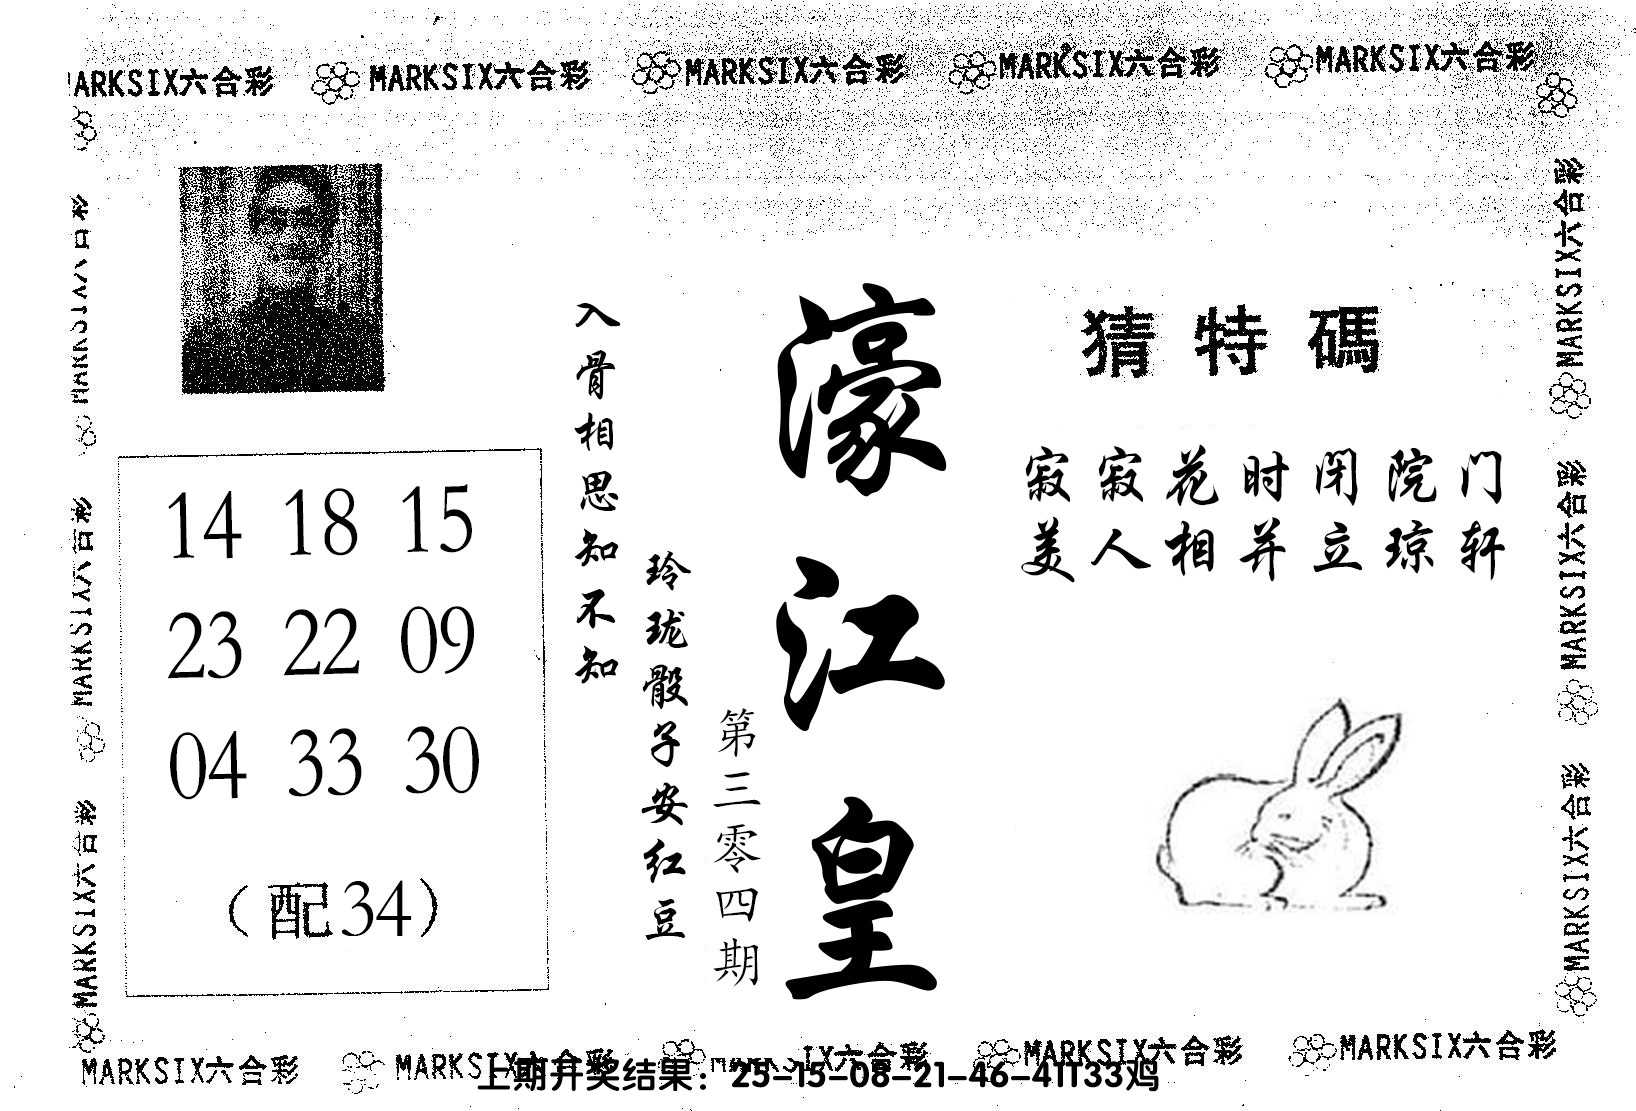 MARKSIX六合彩 MARKSIX六合彩 MARKSIX六合彩 MARKSIX六合彩 MARKSIX六合彩
猜特碼
寂寂花时闭院门
美人相并立琼轩
濠江皇
第三零四期
玲珑骰子安红豆
入骨相思知不知
14 18 15
23 22 09
04 33 30
（配34）
MARKSIX六合彩
MARKSIX六合彩
MARKSIX六合彩
MARKSIX六合彩
MARKSIX六合彩
MARKSIX六合彩
MARKSIX六合彩 MARKSIX六合彩 MARKSIX六合彩 MARKSIX六合彩 MARKSIX六合彩
上期开奖结果：25-15-08-21-46-41T33鸡